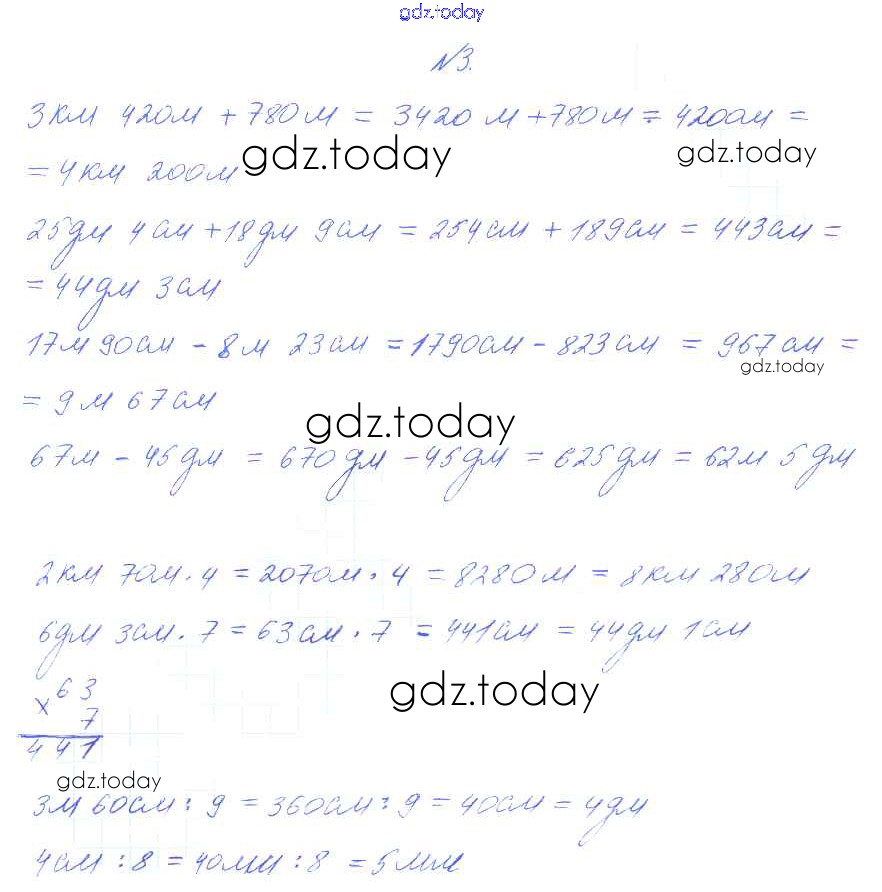 gdz.today
№3.
3км 420м + 780м = 3420м + 780м = 4200м =
= 4км 200м
gdz.today gdz.today
25дм 4см + 18дм 9см = 254см + 189см = 443см =
= 44дм 3см
17м 90см - 8м 23см = 1790см - 823см = 967см =
gdz.today
= 9м 67см
gdz.today
67м - 45дм = 670дм - 45дм = 625дм = 62м 5дм
2км 70м · 4 = 2070м · 4 = 8280м = 8км 280м
6дм 3см · 7 = 63см · 7 = 441см = 44дм 1см
gdz.today
x 63
7
441
gdz.today
3м 60см : 9 = 360см : 9 = 40см = 4дм
4см : 8 = 40мм : 8 = 5мм